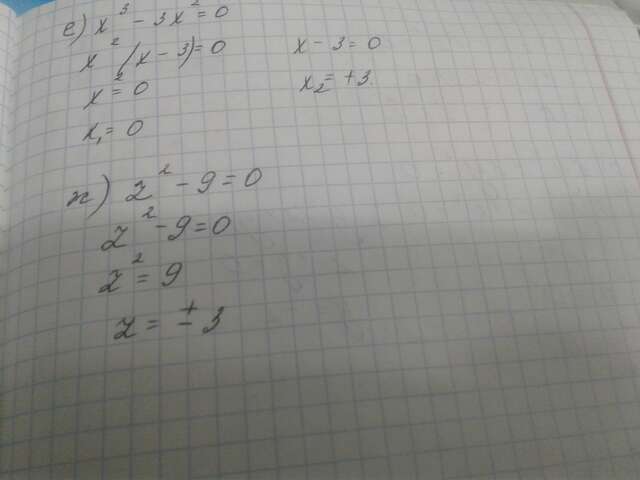 е) x³ - 3x² = 0
x² (x - 3) = 0    x - 3 = 0
x² = 0    x₂ = +3
x₁ = 0
ж) z² - 9 = 0
z² - 9 = 0
z² = 9
z = ± 3